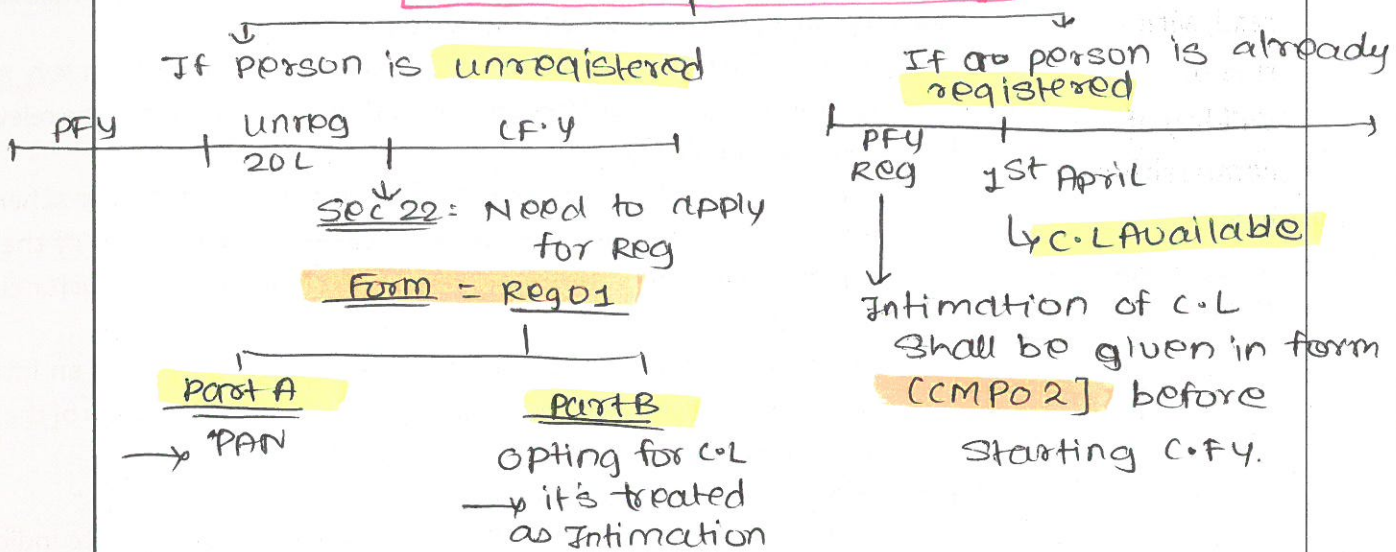 If person is unregistered
PFY
unreg
CF.Y
20L
Sec 22: Need to apply
for Reg
Form = Reg01
Part A
→ PAN
Part B
opting for C.L
→ it's treated
as Intimation
If a person is already
registered
PFY
Reg
1st April
↳ C.L Available
Intimation of C.L
Shall be given in form
[CMP02] before
Starting C.FY.